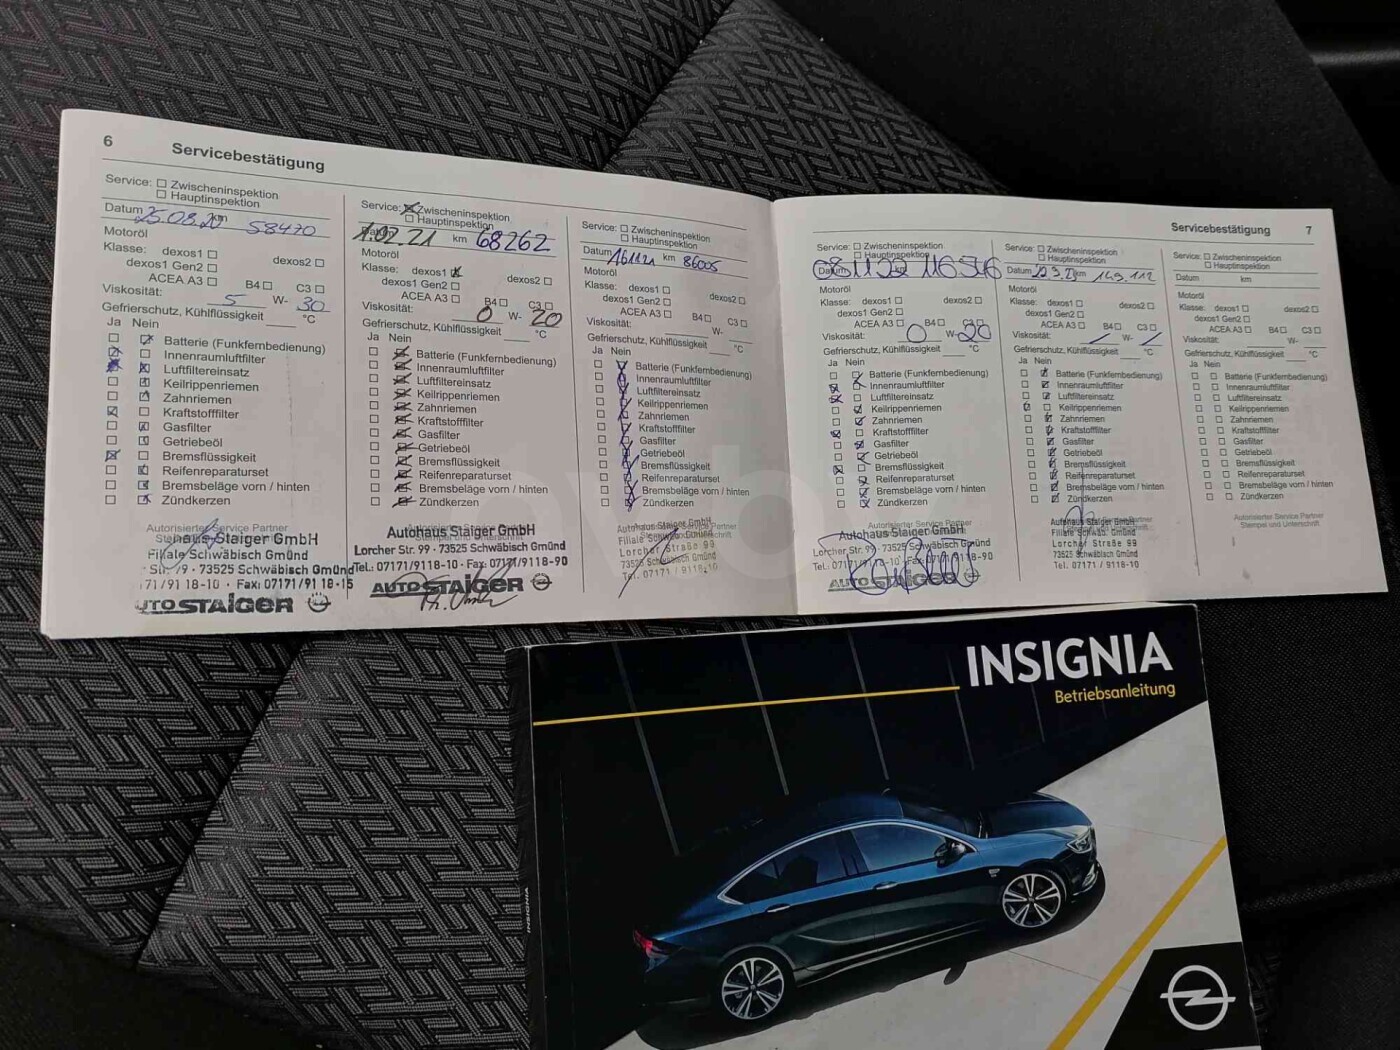 6 Servicebestätigung
Service: Zwischeninspektion
Hauptinspektion
Datum 25.08.20 km 58470
Motoröl
Klasse: dexos1
dexos1 Gen2 dexos2
ACEA A3 B4 C3
Viskosität: 5 W- 30
Gefrierschutz, Kühlflüssigkeit °C
Ja Nein
Batterie (Funkfernbedienung)
Innenraumluftfilter
Luftfiltereinsatz
Keilrippenriemen
Zahnriemen
Kraftstofffilter
Gasfilter
Getriebeöl
Bremsflüssigkeit
Reifenreparaturset
Bremsbeläge vorn / hinten
Zündkerzen
Autorisierter Service Partner
Staiger GmbH
Filiale Schwäbisch Gmünd
73525 Schwäbisch Gmünd
71/91 18-10 · Fax: 07171/91 18-15
UTO STAIGER
Service: Zwischeninspektion
Hauptinspektion
Datum 1.02.21 km 68262
Motoröl
Klasse: dexos1
dexos1 Gen2 dexos2
ACEA A3 B4 C3
Viskosität: 0 W- 20
Gefrierschutz, Kühlflüssigkeit °C
Ja Nein
Batterie (Funkfernbedienung)
Innenraumluftfilter
Luftfiltereinsatz
Keilrippenriemen
Zahnriemen
Kraftstofffilter
Gasfilter
Getriebeöl
Bremsflüssigkeit
Reifenreparaturset
Bremsbeläge vorn / hinten
Zündkerzen
Autohaus Staiger GmbH
Lorcher Str. 99 · 73525 Schwäbisch Gmünd
Tel.: 07171/9118-10 · Fax: 07171/9118-90
AUTO STAIGER
Service: Zwischeninspektion
Hauptinspektion
Datum 161121 km 86005
Motoröl
Klasse: dexos1
dexos1 Gen2 dexos2
ACEA A3 B4 C3
Viskosität: W-
Gefrierschutz, Kühlflüssigkeit °C
Ja Nein
Batterie (Funkfernbedienung)
Innenraumluftfilter
Luftfiltereinsatz
Keilrippenriemen
Zahnriemen
Kraftstofffilter
Gasfilter
Getriebeöl
Bremsflüssigkeit
Reifenreparaturset
Bremsbeläge vorn / hinten
Zündkerzen
Autohaus Staiger GmbH
Lorcher Straße 99
73525 Schwäb. Gmünd
Tel. 07171 / 9118-10
Servicebestätigung 7
Service: Zwischeninspektion
Hauptinspektion
Datum 081122 km 116546
Motoröl
Klasse: dexos1 dexos2
dexos1 Gen2
ACEA A3 B4 C3
Viskosität: 0 W- 20
Gefrierschutz, Kühlflüssigkeit °C
Ja Nein
Batterie (Funkfernbedienung)
Innenraumluftfilter
Luftfiltereinsatz
Keilrippenriemen
Zahnriemen
Kraftstofffilter
Gasfilter
Getriebeöl
Bremsflüssigkeit
Reifenreparaturset
Bremsbeläge vorn / hinten
Zündkerzen
Autohaus Staiger GmbH
Lorcher Str. 99 · 73525 Schwäbisch Gmünd
Tel.: 07171/9118-10 · Fax: 07171/9118-90
AUTO STAIGER
Service: Zwischeninspektion
Hauptinspektion
Datum km 149.112
Motoröl
Klasse: dexos1 dexos2
dexos1 Gen2
ACEA A3 B4 C3
Viskosität: W-
Gefrierschutz, Kühlflüssigkeit °C
Ja Nein
Batterie (Funkfernbedienung)
Innenraumluftfilter
Luftfiltereinsatz
Keilrippenriemen
Zahnriemen
Kraftstofffilter
Gasfilter
Getriebeöl
Bremsflüssigkeit
Reifenreparaturset
Bremsbeläge vorn / hinten
Zündkerzen
Autohaus Staiger GmbH
Lorcher Straße 99
73525 Schwäb. Gmünd
Tel. 07171 / 9118-10
Service: Zwischeninspektion
Hauptinspektion
Datum km
Motoröl
Klasse: dexos1 dexos2
dexos1 Gen2
ACEA A3 B4 C3
Viskosität: W-
Gefrierschutz, Kühlflüssigkeit °C
Ja Nein
Batterie (Funkfernbedienung)
Innenraumluftfilter
Luftfiltereinsatz
Keilrippenriemen
Zahnriemen
Kraftstofffilter
Gasfilter
Getriebeöl
Bremsflüssigkeit
Reifenreparaturset
Bremsbeläge vorn / hinten
Zündkerzen
Autorisierter Service Partner
Stempel und Unterschrift
INSIGNIA
Betriebsanleitung
INSIGNIA